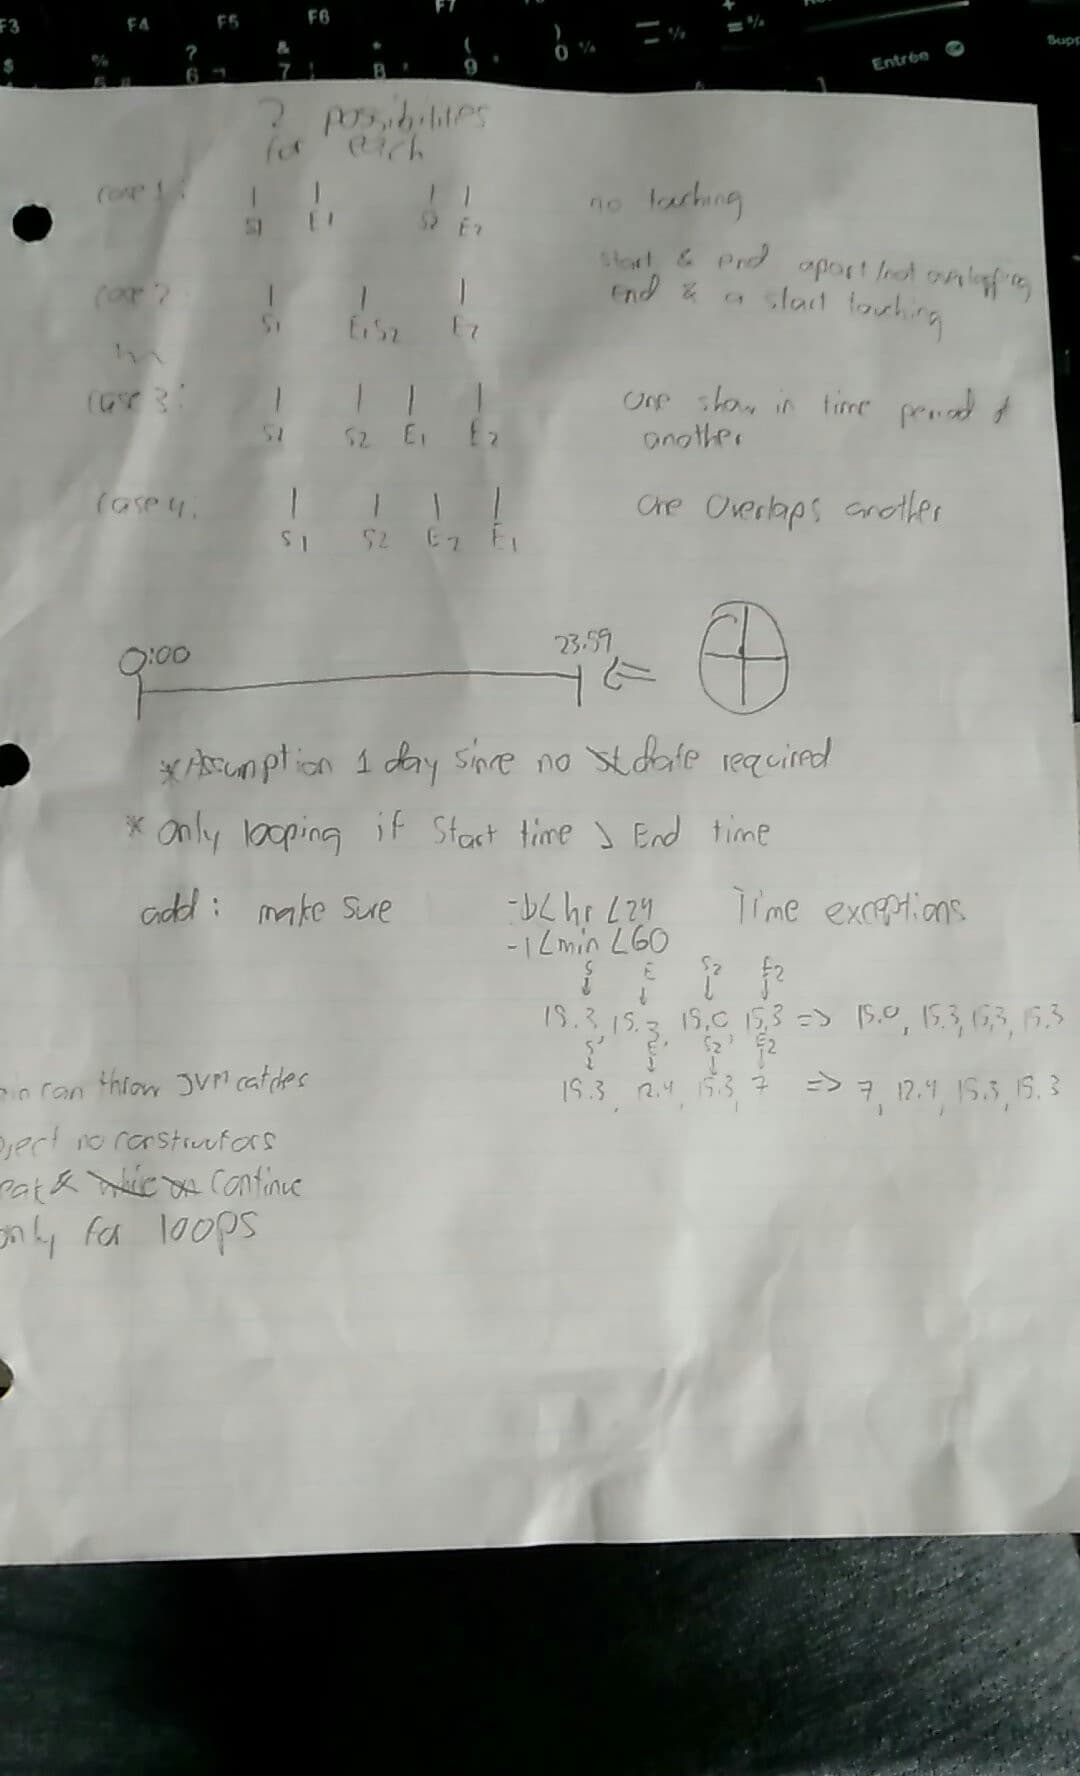 F3 F4 F5 F6 F7
$ % ? 6 & 7 * 8 ( 9 ) 0 = Entrée Supp
2 possibilities
for each
case 1: S1 E1 S2 E2 no touching
start & end apart/not overlapping
case 2 S1 E1S2 E2 End & a start touching
case 3: S1 S2 E1 E2 one show in time period of
another
case 4: S1 S2 E2 E1 one overlaps another
0:00 23.59
*Assumption 1 day since no date required
* only looping if Start time > End time
add: make sure -1<hr<24 Time exceptions
-1<min<60
S E S2 E2
15.3, 15.3, 15.0, 15.3 => 15.0, 15.3, 15.3, 15.3
S E S2 E2
15.3, 12.4, 15.3, 7 => 7, 12.4, 15.3, 15.3
can throw JVM catches
no constructors
& continue
only for loops